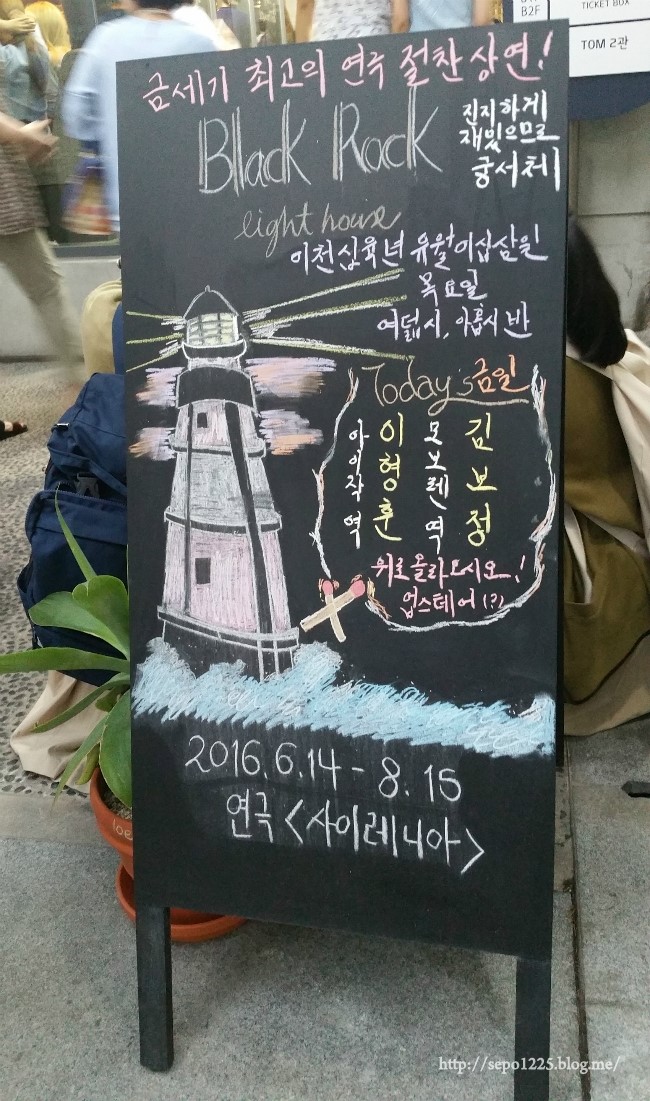 B2F
TICKET BOX
TOM 2관
금세기 최고의 연극 절찬상연!
Black Rock
진지하게
재밌으므로
궁서체
light house
이천십육년 유월이십삼일
목요일
여덟시, 아홉시 반
Today's 금일
김보정
모보렌 역
이형훈
아이작 역
위로 올라오시오!
업스테어(?)
2016.6.14 - 8.15
연극 <사이레니아>
http://sepo1225.blog.me/